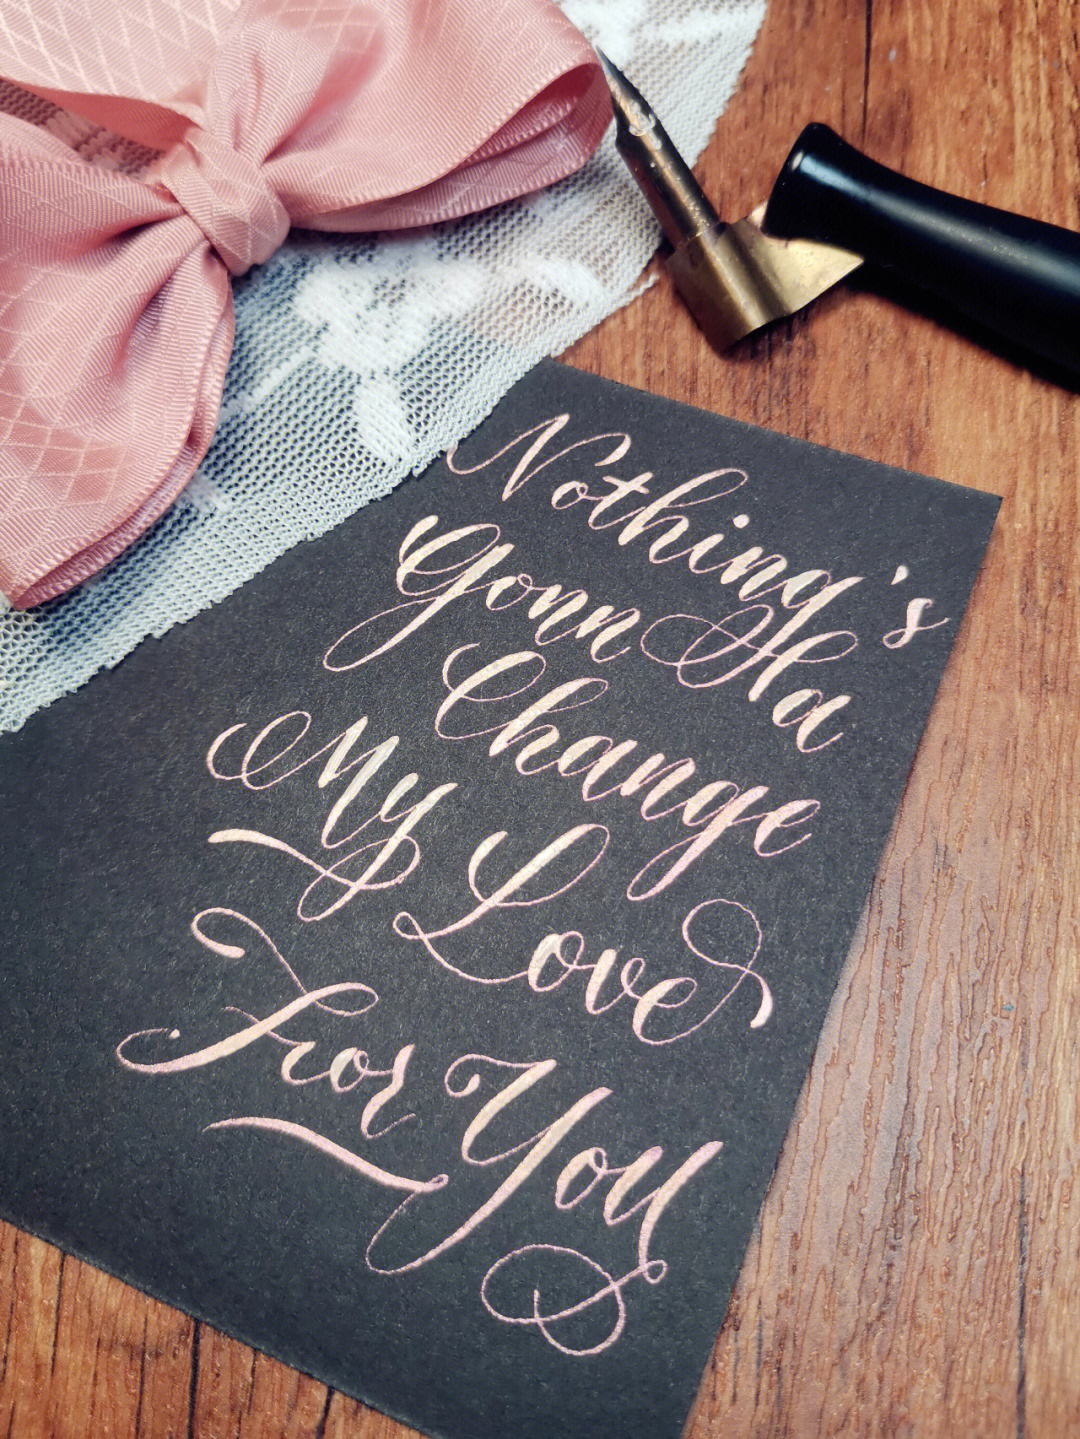 Nothing's
Gonn Ha
Change
My Love
For You